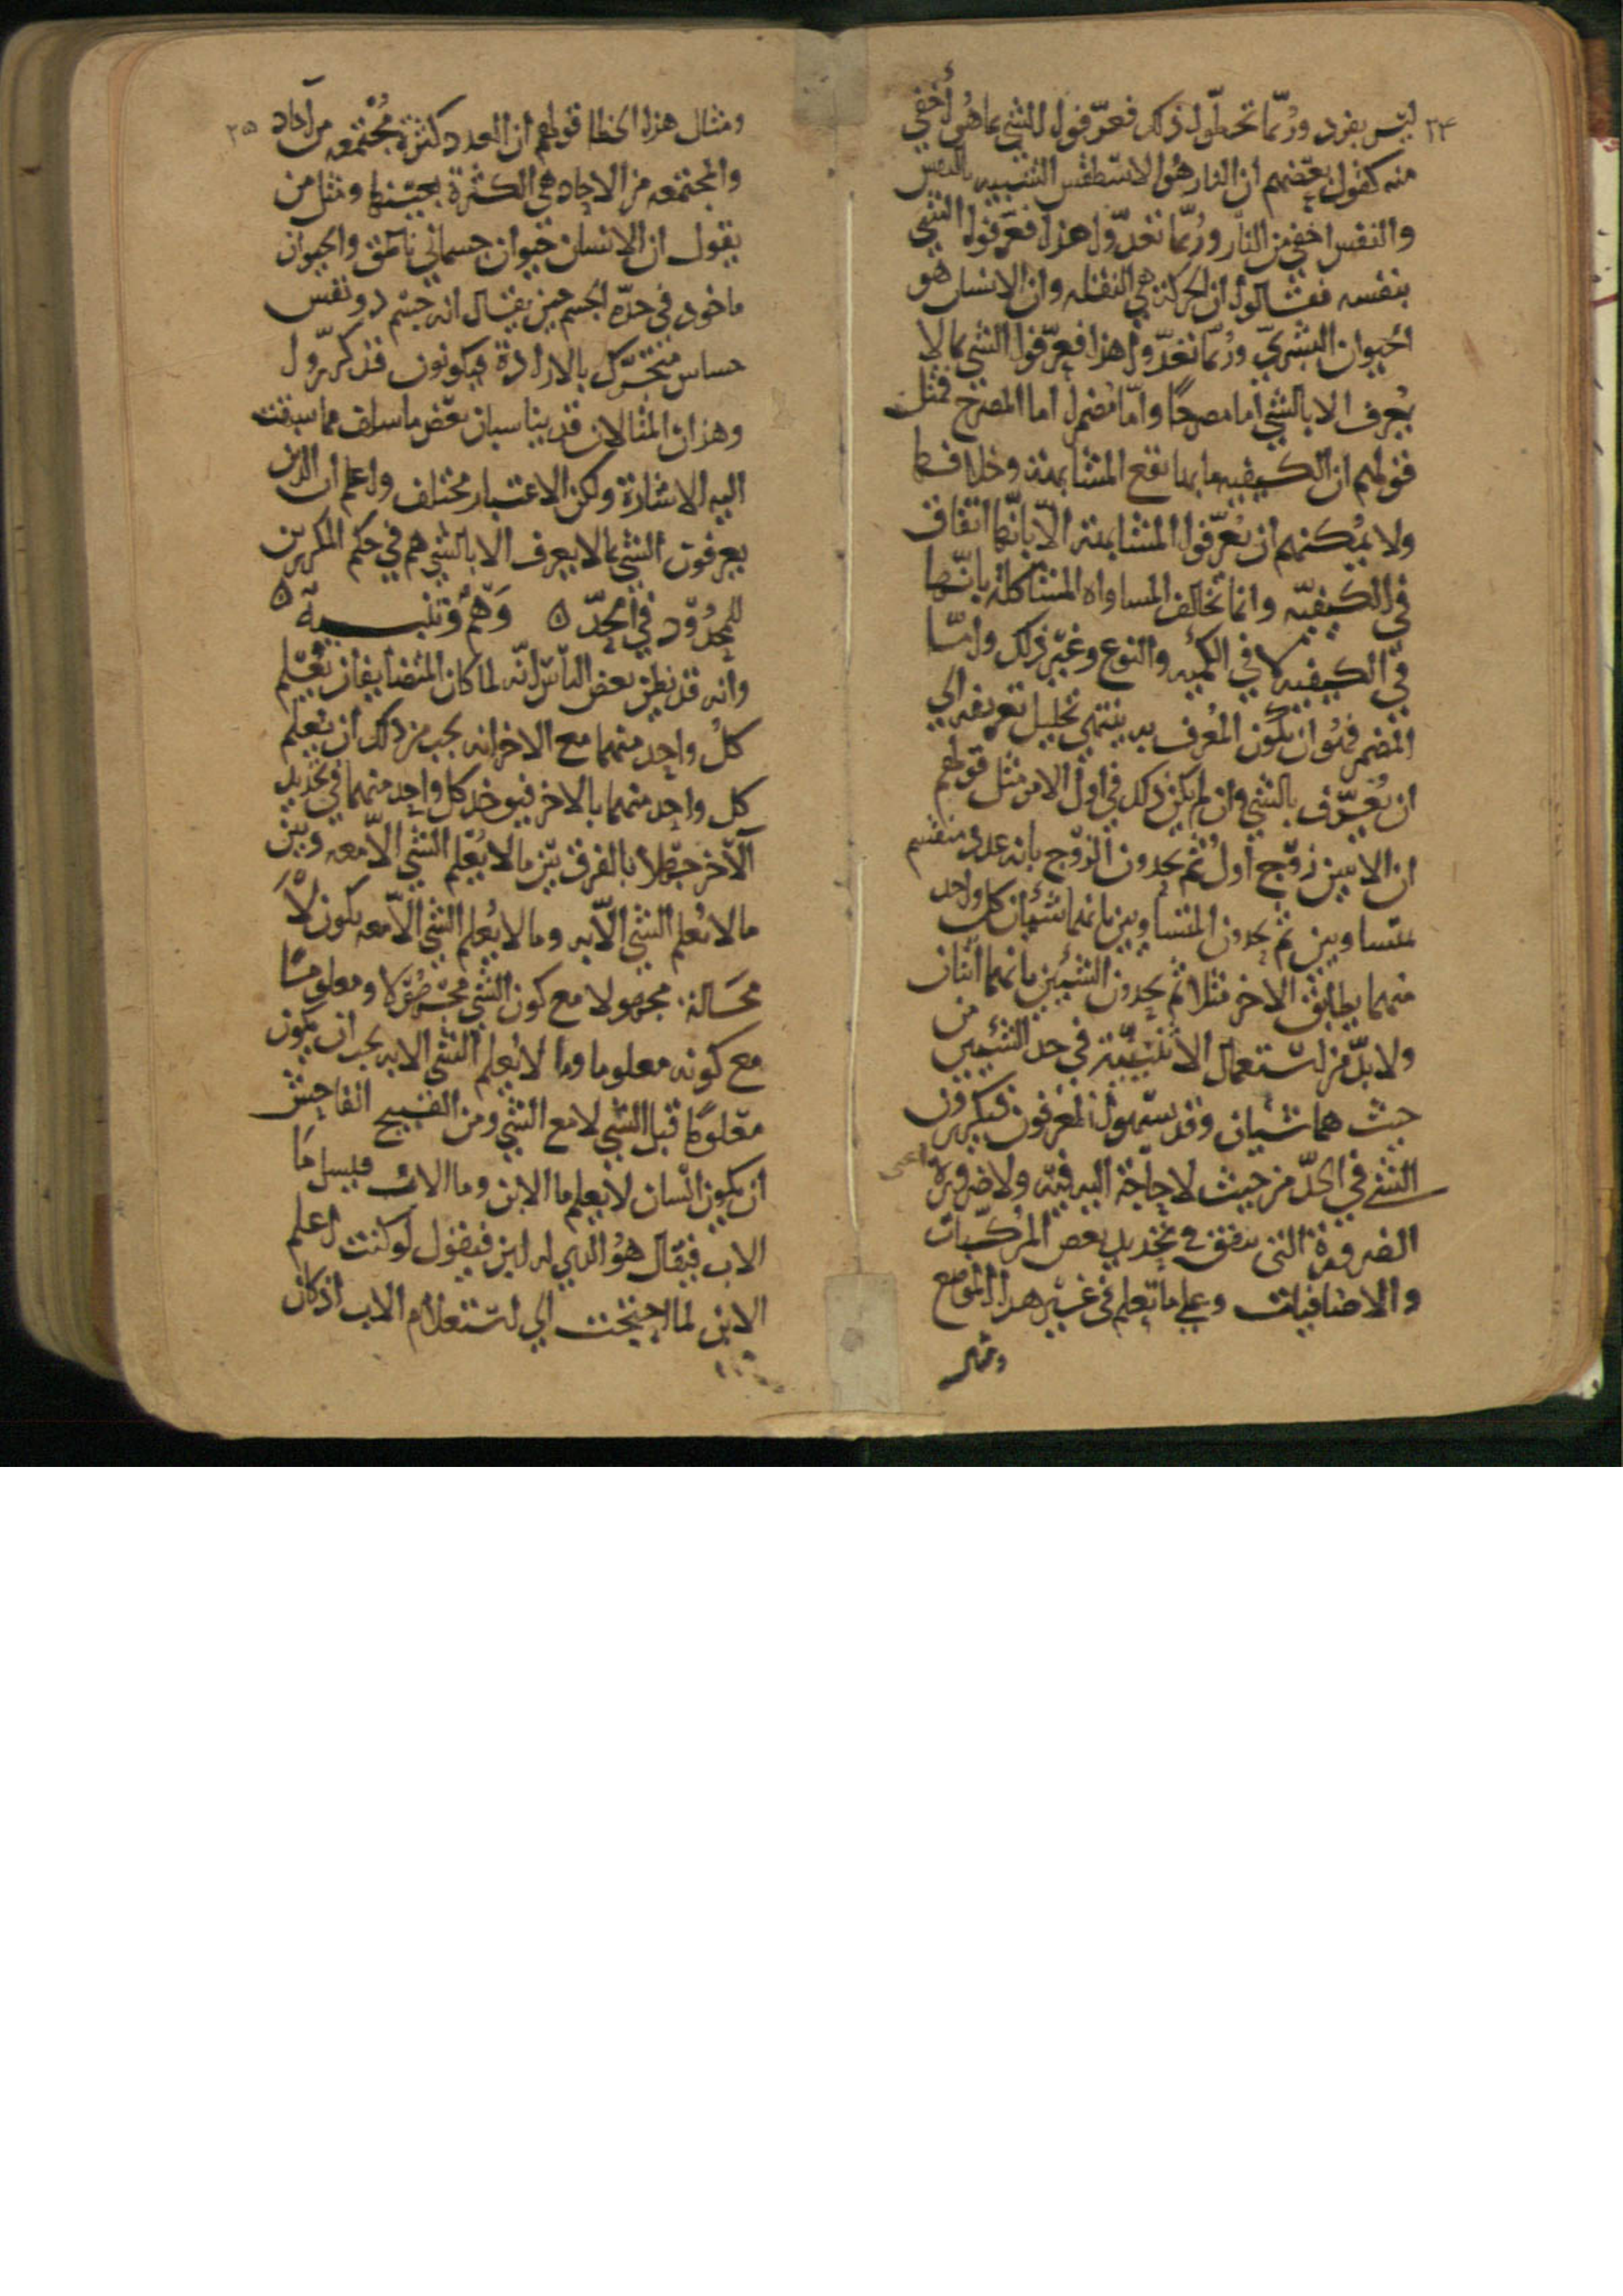 ٢٤
ليس بفرد وربّما تخطّوا ذلك فعرّفوا الشي بما هو أخفى
منه كقول بعضهم ان النار هو الاسطقس الشبيه بالنفس
والنفس اخفى من النار وربّما تعدّوا هذا فعرّفوا الشي
بنفسه فقالوا ان الحركة هي النقله وان الانسان هو
الحيوان البشريّ وربّما تعدّوا هذا فعرّفوا الشي بما لا
يُعرف الا بالشي أما مصرحًا واما مُضمرا أما المصرح فمثل
قولهم ان الكيفيه ما بها تقع المشابهة وخلافها
ولا يُمكنهم ان يُعرّفوا المشابهة الّا بانّها اتفاق
في الكيفيّه وانما تخالف المساواه المشاكلة بانّها
في الكيفيه لا في الكميه والنوع وغير ذلك وامّا
المضمر فهو ان يكون المُعرف به ينتهي تحليل تعريفه الي
ان يُعرّف بالشي وان لم يكن ذلك في اول الامر مثل قولهم
ان الاثنين زوج أول ثم يحدون الزوج بانه عدد منقسم
بمتساويين ثم يحدون المتساويين بانهما شيئان كل واحد
منهما يطابق الاخر مثلا ثم يحدون الشيئين بانهما اثنان
ولا بدّ من استعمال الاثنينيّة في حد الشيئين من
حيث هما شيان وقد يسهوا المعرفون فيكررون
الشي في الحدّ من حيث لا حاجة اليه فيه ولا ضرورة اعني
الضرورة التي تتفق في تحديد بعض المركبات
والاضافيات وعلي ما تعلم في غير هذا الموضع
ومثال
٢٥
ومثال هذا الخطا قولهم ان العدد كثرة مُجتمعه من آحاد
والمجتمعه من الاحاد هي الكثرة بعينها ومثل من
يقول ان الانسان حيوان جسماني ناطق والحيوان
ماخود في حدّه الجسم حين يقال انه جسم دو نفس
حساس متحرّك بالارادة فيكونون قد كرّروا
وهذان المثالان قد يناسبان بعض ما سلف مما سبقت
اليه الاشارة ولكن الاعتبار مختلف واعلم ان الذين
يعرفون الشي بما لا يعرف الا بالشي هم في حكم المكررين
للمحدُوّد في الحدّ ٥ وَهْمٌ وتنبيهٌ ٥
وانه قد يظن بعض الناس انّه لما كان المتضايفان يُعلم
كل واحد منهما مع الاخر انه يجب من ذلك ان يعلم
كل واحد منهما بالاخر فيوخذ كل واحد منهما في تحديد
الآخر جهلا بالفرق بين ما لا يُعلم الشي الّا معه وبين
ما لا يُعلم الشي الّا به وما لا يُعلم الشي الّا معه يكون لا
محَالة مجهولا مع كون الشي مجهولا ومعلوما
مع كونه معلوما وما لا يُعلم الشي الا به يجب ان يكون
معلومًا قبل الشي لا مع الشي ومن القبيح الفاحش
ان يكون انسان لا يعلم ما الابن وما الاب فيسل ما
الاب فيقال هو الذي له ابن فيقول لو كنت اعلم
الابن لما احتجت الي استعلام الاب اذ كان